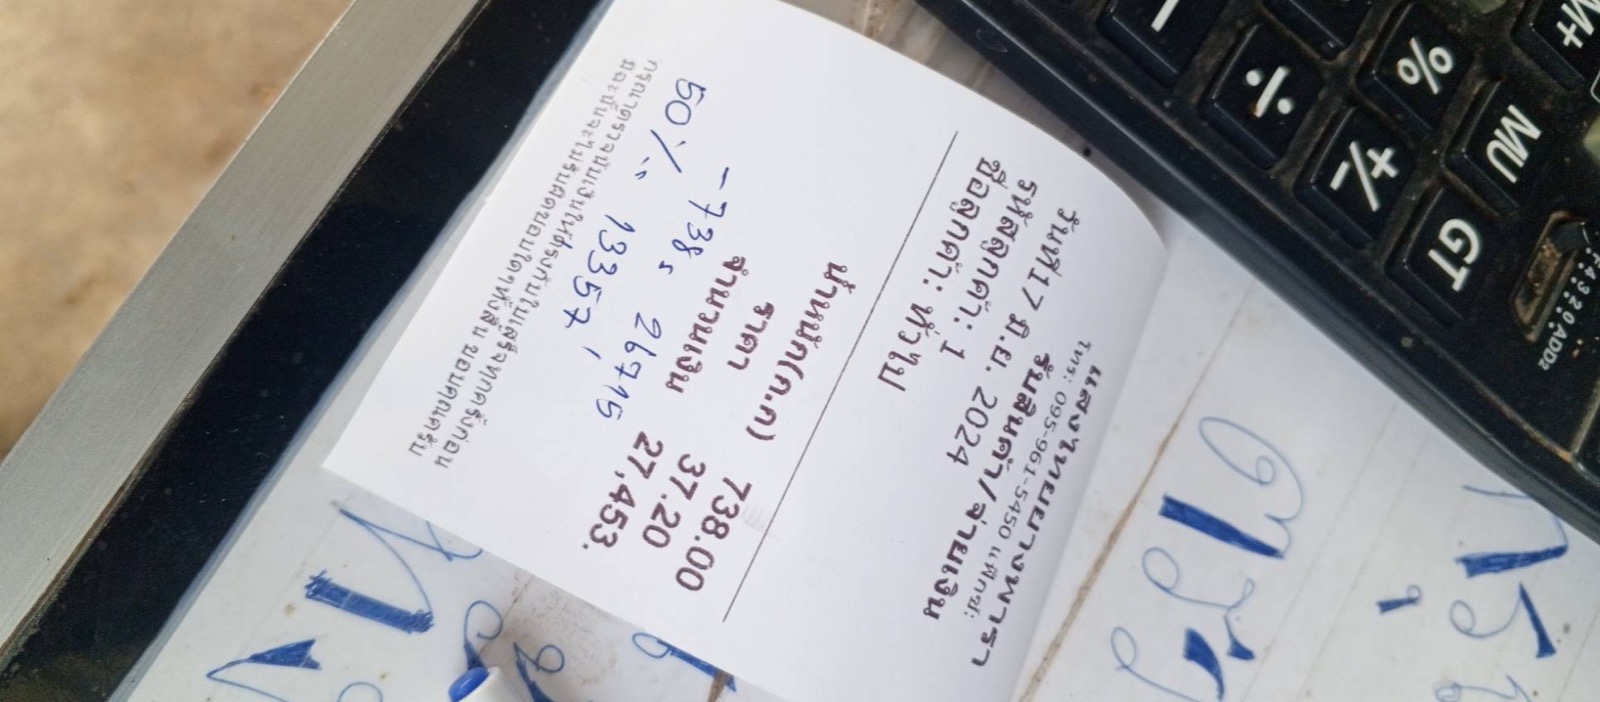 แสงไทยยางพารา
โทร: 095-961-5450 แฟกซ์:
รับสินค้า/จ่ายเงิน
วันที่17 มิ.ย. 2024
รหัสลูกค้า: 1
ชื่อลูกค้า: ทั่วไป
น้ำหนัก(ก.ก) 738.00
ราคา 37.20
จำนวนเงิน 27,453.
-738
26715
50%
13357
กรุณาตรวจนับเงินให้ตรงกับใบเสร็จทุกครั้งก่อน
มิฉะนั้นจะไม่รับผิดชอบใดๆทั้งสิ้น ขอบคุณครับ
M+
%
MU
÷
+/-
GT
F 4 3 2 0 A ADD2